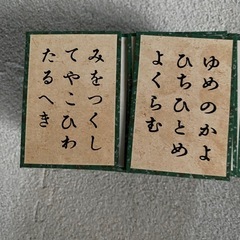 ゆめのかよ
ひちひとめ
よくらむ
みをつくし
てやこひわ
たるへき